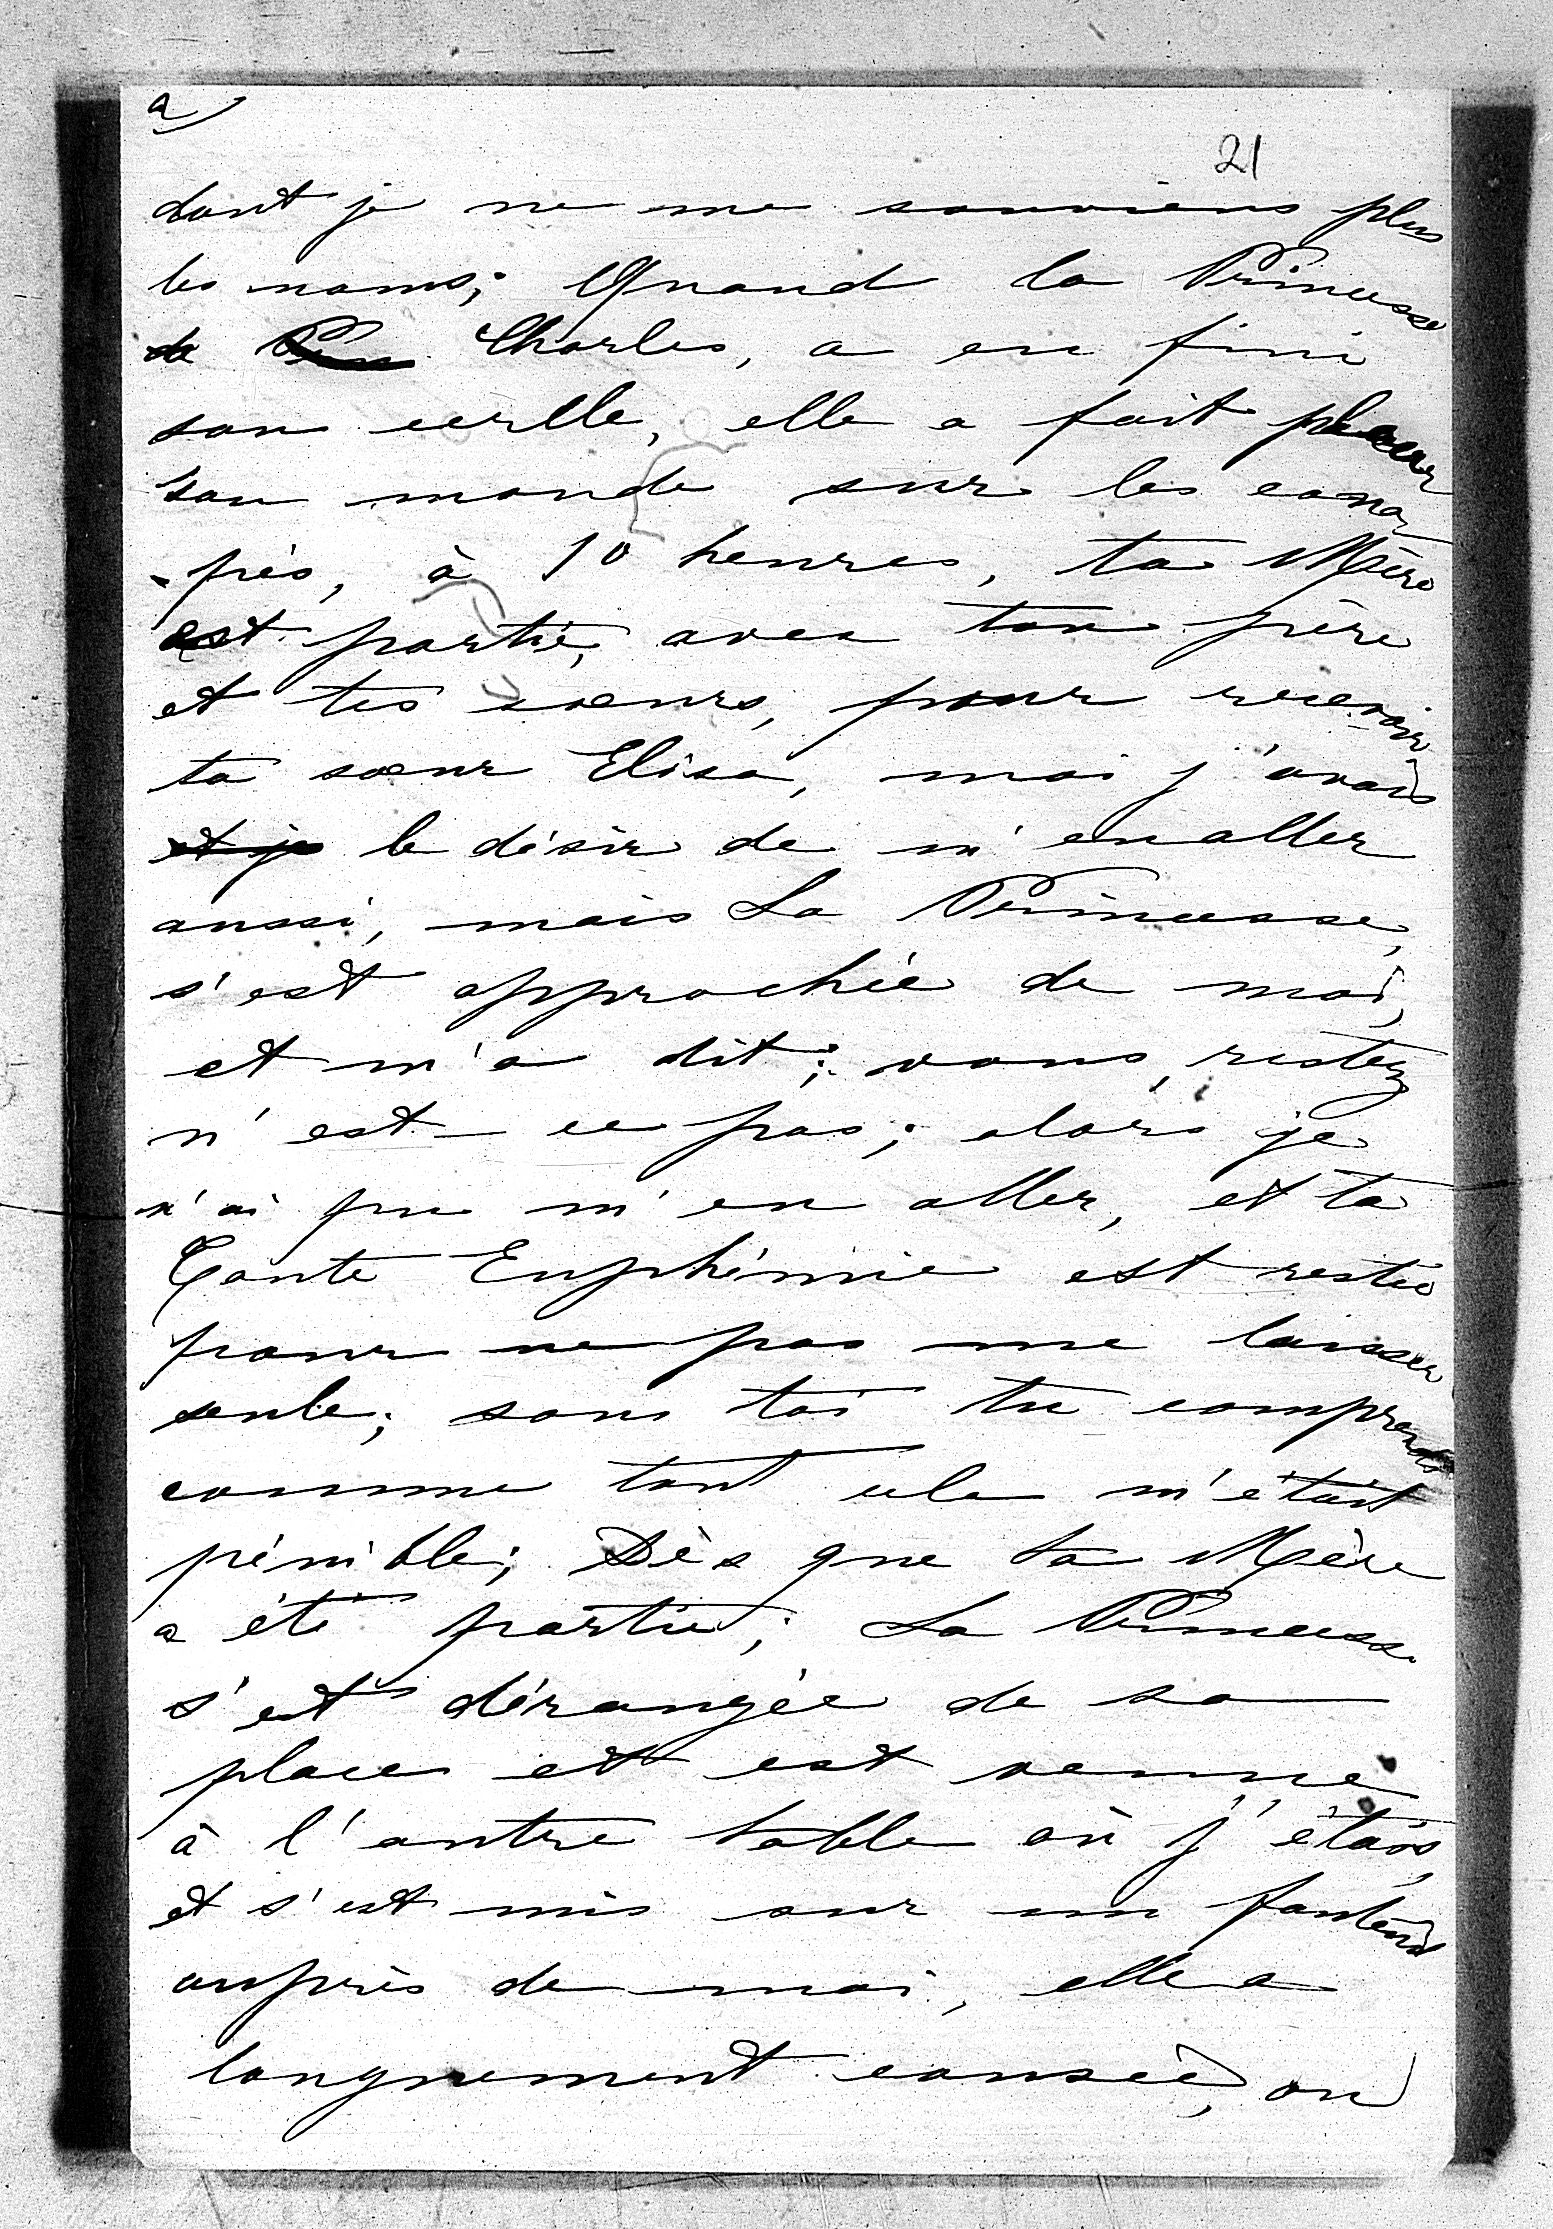 a
21
dont je ne me souviens plus
les noms; Quand la Princesse
de Charles, a eu fini
son cerlle, elle a fait placer
son monde sur les cana-
-pés, à 10 heures, ta Mère
est partie, avec ton père
et tes soeurs, pour recevoir
ta soeur Elisa, moi j'avais
et je le désir de m'en aller
aussi, mais La Princesse,
s'est approchée de moi,
et m'a dit; vous, restez
n'est-ce pas; alors je
n'ai pu m'en aller, et ta
Tante Euphémie est restée
pour ne pas me laisser
seule; sans toi tu comprends
comme tout cela m'était
pénible; Dès que ta Mère
a été partie; La Princesse
s'est dérangée de sa
place et est venue
à l'autre table où j'étais,
et s'est mis sur un fauteuil
auprès de moi, elle a
longuement causée, on